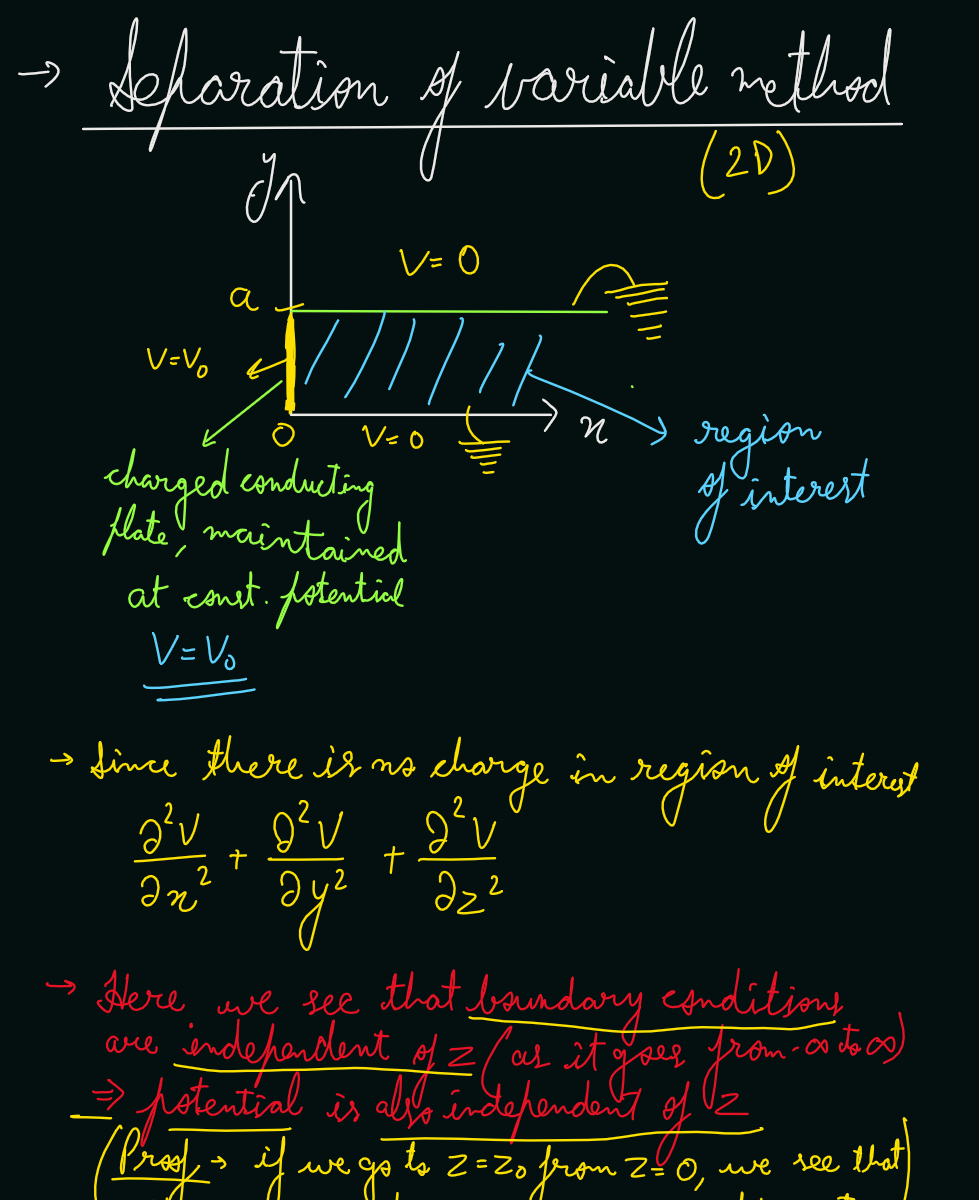 → Separation of variable method
(2D)
y
V = 0
a
V=V₀
0
V=0
x
region
of interest
charged conducting
plate, maintained
at const. potential
V=V₀
→ Since there is no charge in region of interest
∂²V/∂x² + ∂²V/∂y² + ∂²V/∂z²
→ Here we see that boundary conditions
are independent of z (as it goes from -∞ to ∞)
⇒ potential is also independent of z
(Proof → if we go to z=z₀ from z=0, we see that